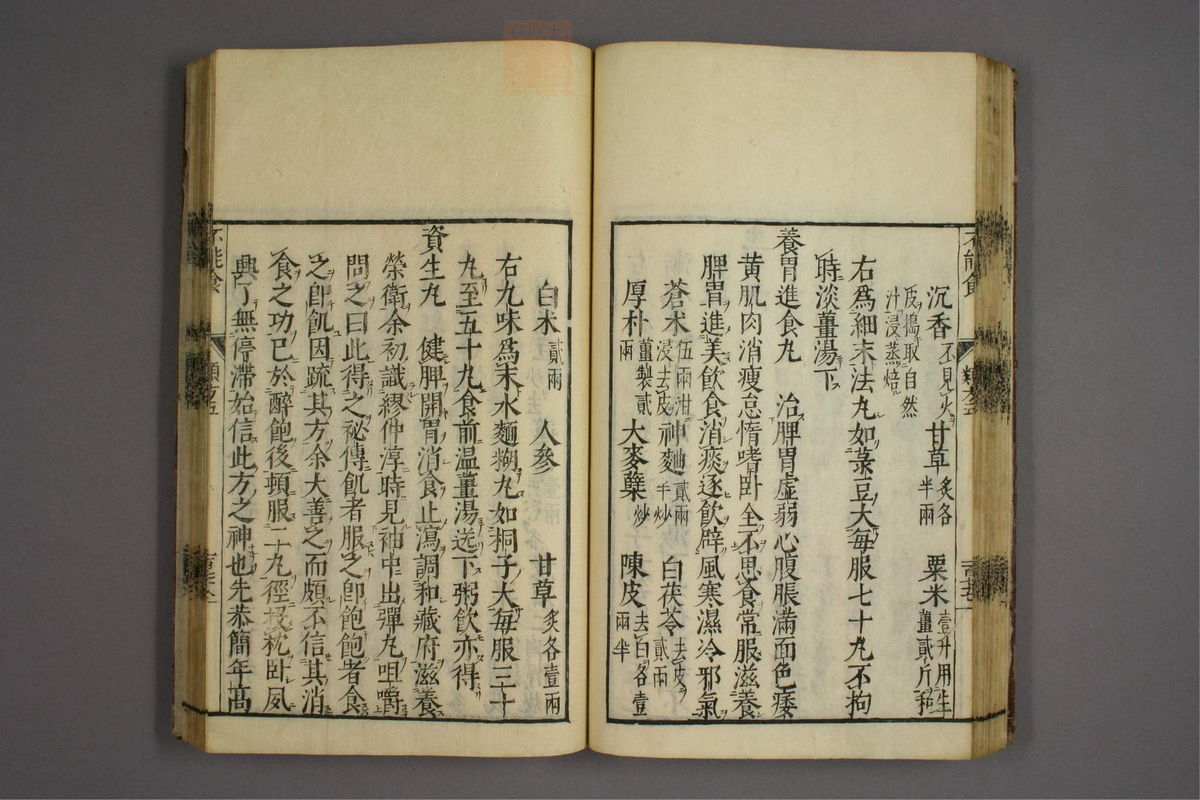 沉香不見火 甘草炙各半兩 粟米壹升用生薑貳斤和
皮搗取自然汁浸蒸焙
右為細末法丸如菉豆大每服七十丸不拘
時淡薑湯下
養胃進食丸 治脾胃虛弱心腹脹滿面色痿
黃肌肉消瘦怠惰嗜卧全不思食常服滋養
脾胃進美飲食消痰逐飲辟風寒濕冷邪氣
蒼朮伍兩泔浸去皮 神麯貳兩半炒 白茯苓去皮貳兩
厚朴薑製貳兩 大麥蘗炒 陳皮去白各壹兩半
白朮貳兩 人參 甘草炙各壹兩
右九味為末水麵糊丸如桐子大每服三十
丸至五十丸食前溫薑湯送下粥飲亦得
資生丸 健脾開胃消食止瀉調和藏府滋養
榮衛余初識繆仲淳時見袖中出彈丸咀嚼
問之曰此得之祕傳飢者服之卽飽飽者食
之卽飢因疏其方余大善之而頗不信其消
食之功已於醉飽後頓服二丸徑投枕卧夙
興了無停滯始信此方之神也先恭簡年高
不能食
類方五